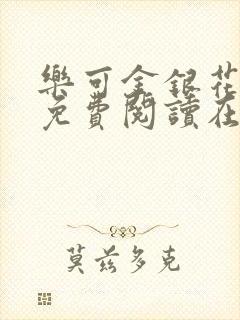 樂可金銀花
免費閱讀在
莫茲多克